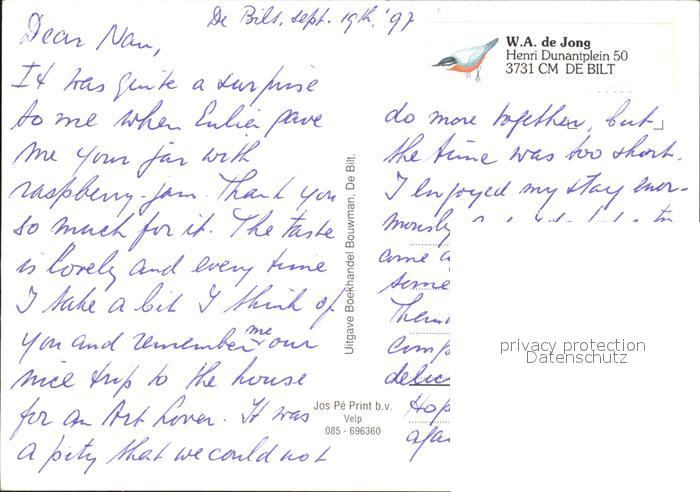 De Bilt, sept. 19th, '97
Dear Nan,
It was quite a surprise
to me when Eulie gave
me your jar with
raspberry-jam. Thank you
so much for it. The taste
is lovely and every time
I take a bit I think of
you and remember me our
nice trip to the house
for an Art Lover. It was
a pity that we could not
W.A. de Jong
Henri Dunantplein 50
3731 CM DE BILT
do more together, but
the time was too short.
I enjoyed my stay enor-
mously
come
some
Them
comp
delic
Hop
Uitgave Boekhandel Bouwman, De Bilt.
Jos Pé Print b.v.
Velp
085 - 696360
privacy protection
Datenschutz